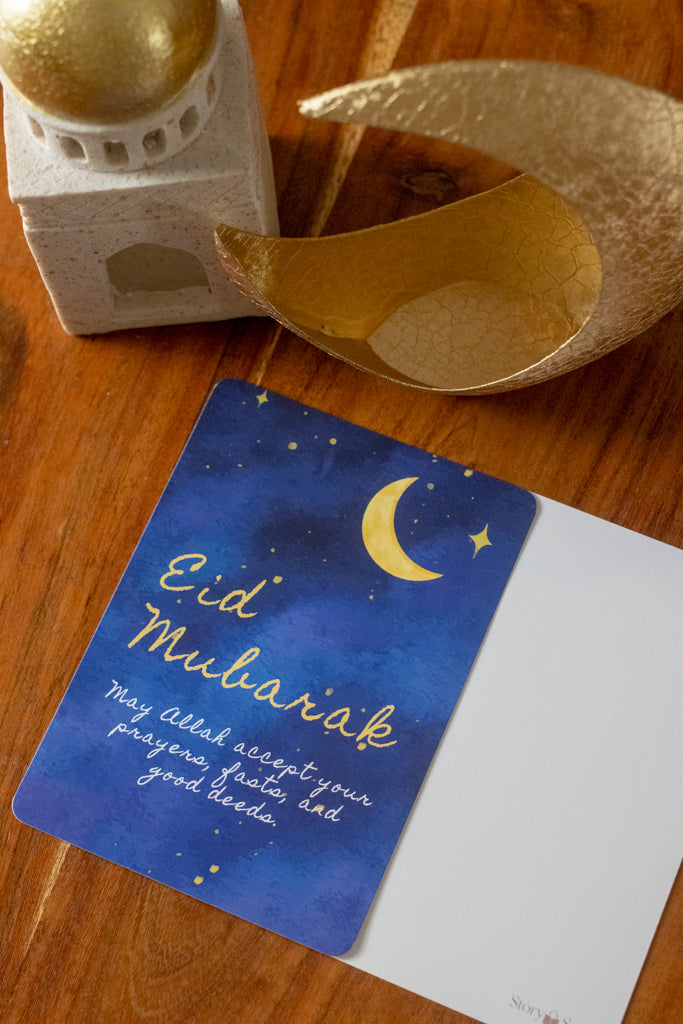 Eid
Mubarak
May Allah accept your
prayers, fasts, and
good deeds.
Story